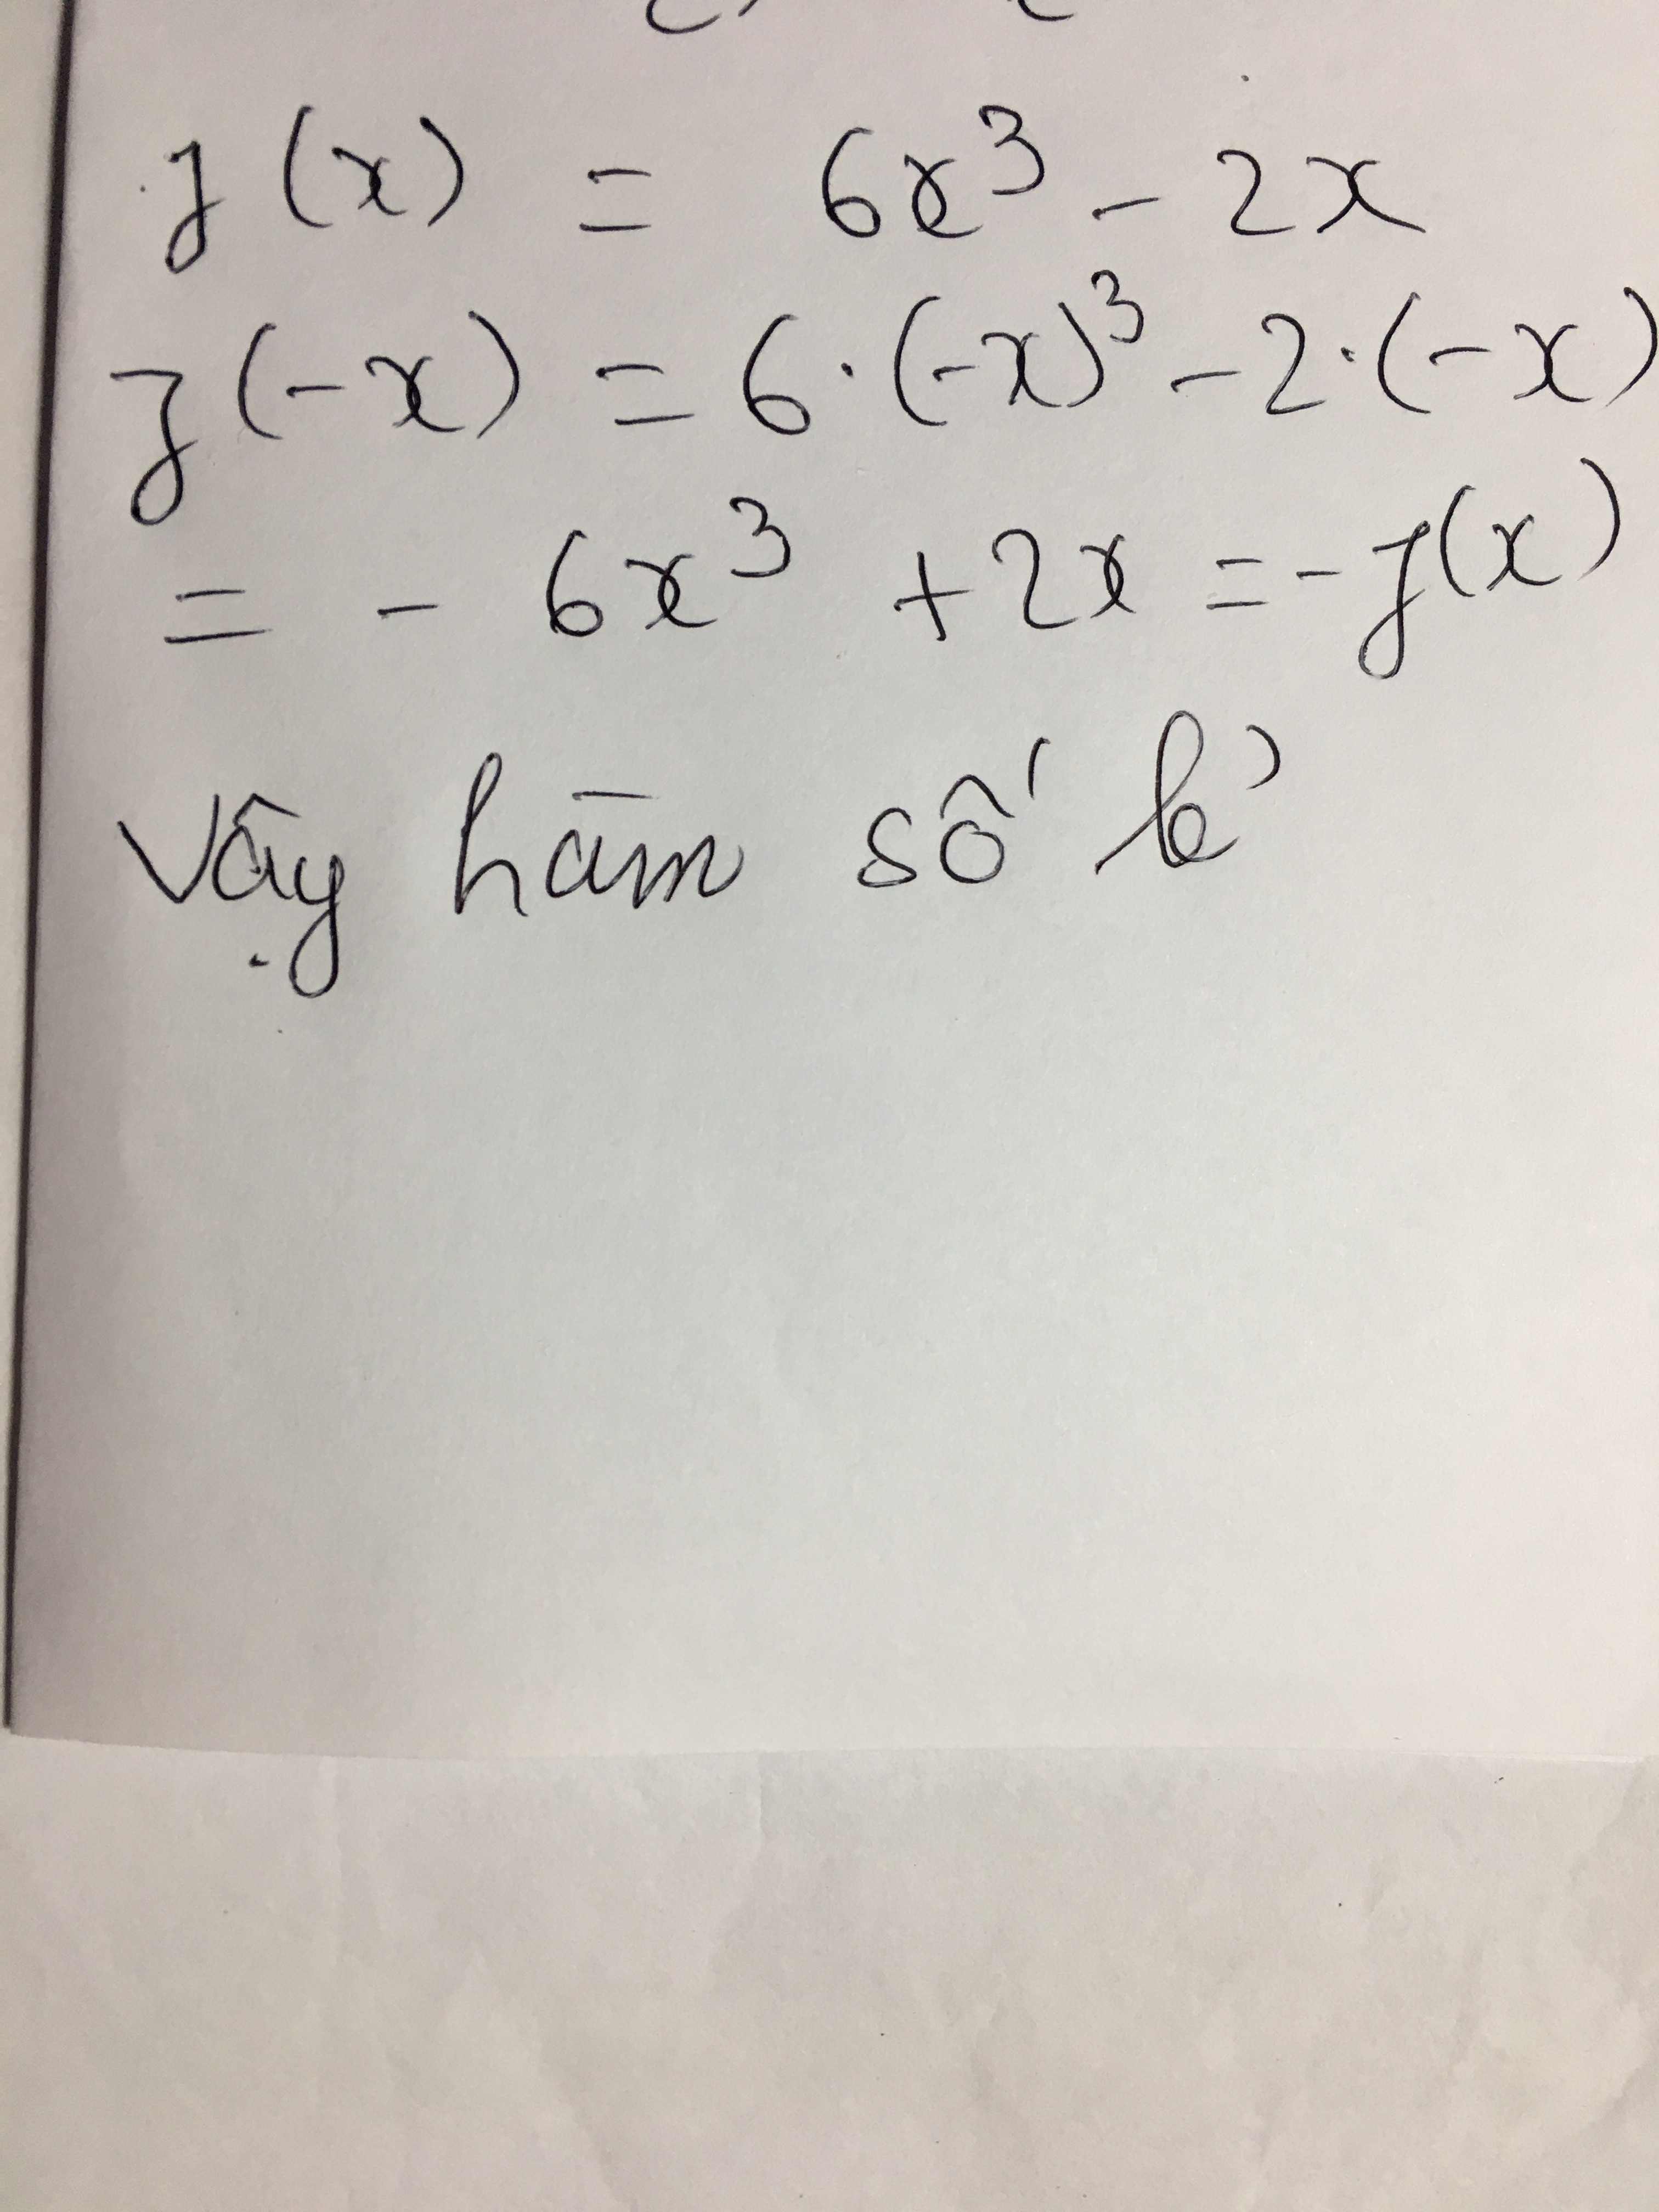 f(x) = 6x³ - 2x
f(-x) = 6·(-x)³ - 2·(-x)
= - 6x³ + 2x = -f(x)
Vậy hàm số lẻ